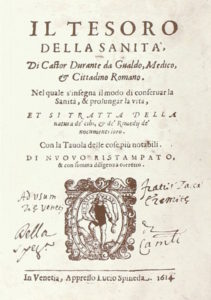 IL TESORO
DELLA SANITÀ,
Di Castor Durante da Gualdo, Medico,
& Cittadino Romano.
Nel quale s'insegna il modo di conseruar la
Sanità, & prolungar la vita,
ET SI TRATTA DELLA
natura de' cibi, & de' Rimedij de'
nocumenti loro.
Con la Tauola delle cose più notabili.
DI NUOVO RISTAMPATO,
& con somma diligenza
Ad usum
Della
In Venetia, Appresso Lucio Spineda. 1614